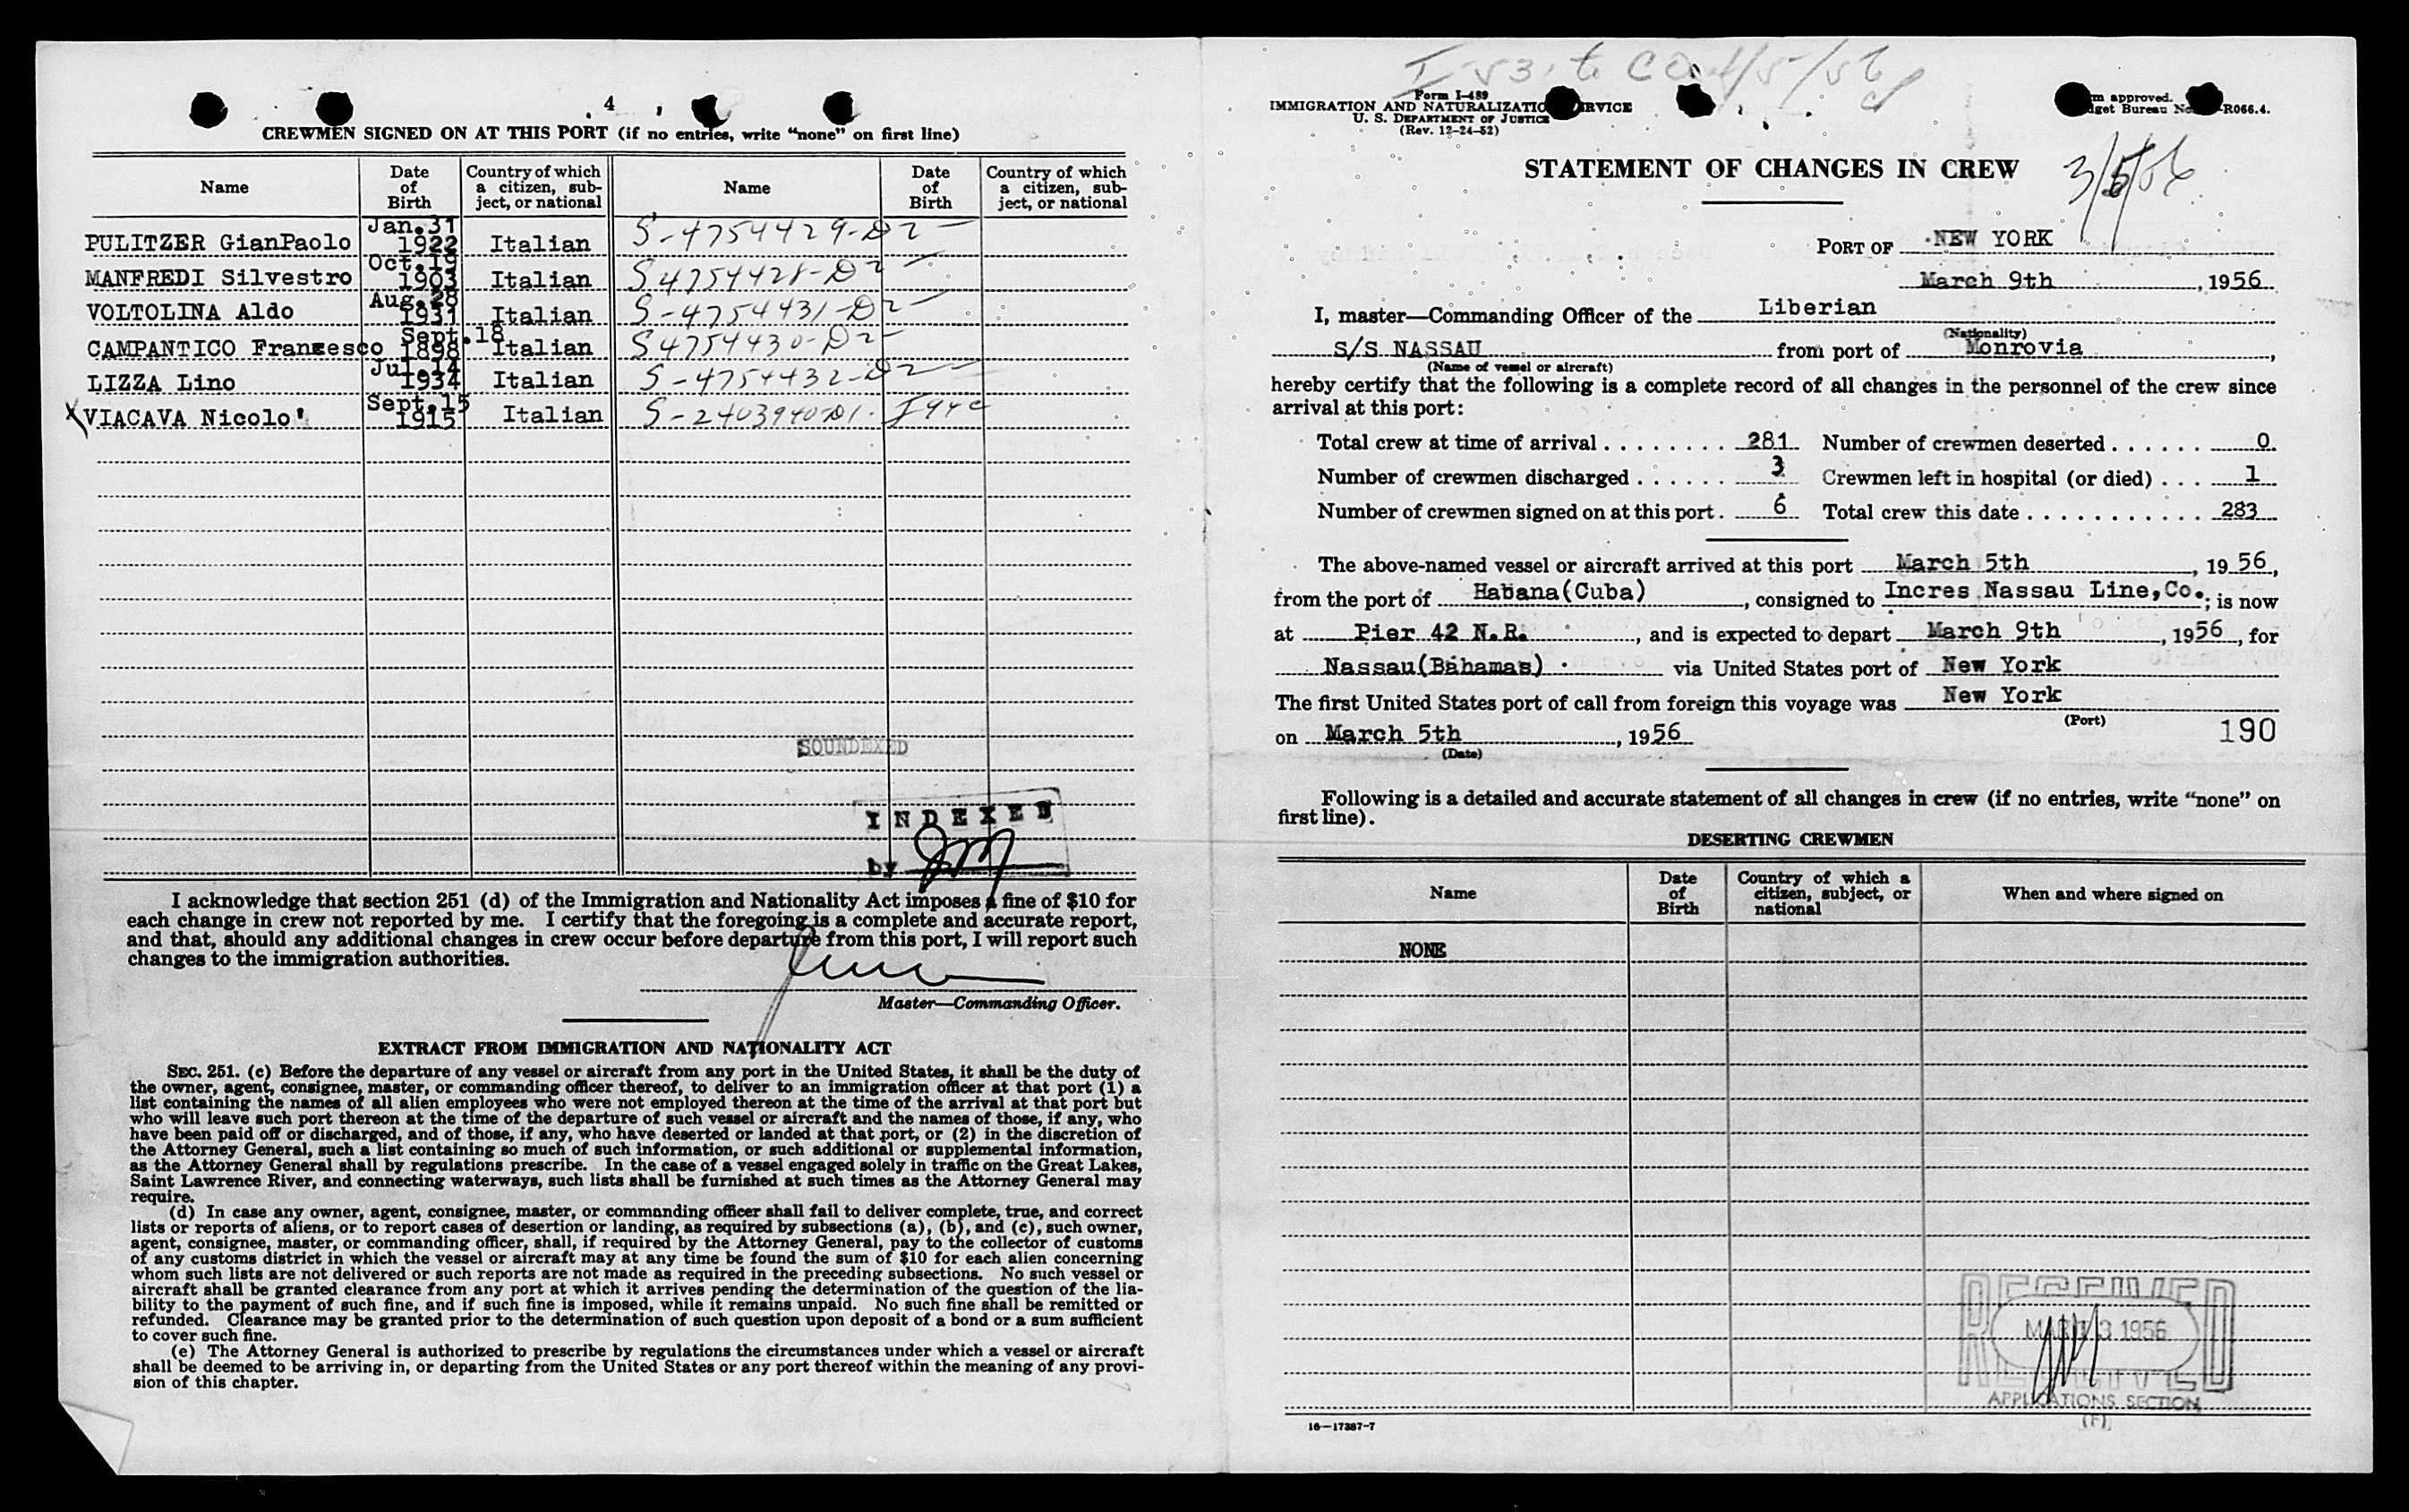 4
CREWMEN SIGNED ON AT THIS PORT (if no entries, write "none" on first line)
Name
Date of Birth
Country of which a citizen, subject, or national
Name
Date of Birth
Country of which a citizen, subject, or national
PULITZER GianPaolo Jan.31 1922 Italian S-4754429-D2
MANFREDI Silvestro Oct.19 1903 Italian S4754428-D2
VOLTOLINA Aldo Aug.28 1931 Italian S-4754431-D2
CAMPANTICO Francesco Sept.18 1898 Italian S4754430-D2
LIZZA Lino Jul.14 1934 Italian S-4754432-D2
X VIACAVA Nicolo' Sept.15 1915 Italian S-2403940-D1.
SOUNDEXED
INDEXED
by JM
I acknowledge that section 251 (d) of the Immigration and Nationality Act imposes a fine of $10 for
each change in crew not reported by me. I certify that the foregoing is a complete and accurate report,
and that, should any additional changes in crew occur before departure from this port, I will report such
changes to the immigration authorities.
Master—Commanding Officer.
EXTRACT FROM IMMIGRATION AND NATIONALITY ACT
SEC. 251. (c) Before the departure of any vessel or aircraft from any port in the United States, it shall be the duty of
the owner, agent, consignee, master, or commanding officer thereof, to deliver to an immigration officer at that port (1) a
list containing the names of all alien employees who were not employed thereon at the time of the arrival at that port but
who will leave such port thereon at the time of the departure of such vessel or aircraft and the names of those, if any, who
have been paid off or discharged, and of those, if any, who have deserted or landed at that port, or (2) in the discretion of
the Attorney General, such a list containing so much of such information, or such additional or supplemental information,
as the Attorney General shall by regulations prescribe. In the case of a vessel engaged solely in traffic on the Great Lakes,
Saint Lawrence River, and connecting waterways, such lists shall be furnished at such times as the Attorney General may
require.
(d) In case any owner, agent, consignee, master, or commanding officer shall fail to deliver complete, true, and correct
lists or reports of aliens, or to report cases of desertion or landing, as required by subsections (a), (b), and (c), such owner,
agent, consignee, master, or commanding officer, shall, if required by the Attorney General, pay to the collector of customs
of any customs district in which the vessel or aircraft may at any time be found the sum of $10 for each alien concerning
whom such lists are not delivered or such reports are not made as required in the preceding subsections. No such vessel or
aircraft shall be granted clearance from any port at which it arrives pending the determination of the question of the lia-
bility to the payment of such fine, and if such fine is imposed, while it remains unpaid. No such fine shall be remitted or
refunded. Clearance may be granted prior to the determination of such question upon deposit of a bond or a sum sufficient
to cover such fine.
(e) The Attorney General is authorized to prescribe by regulations the circumstances under which a vessel or aircraft
shall be deemed to be arriving in, or departing from the United States or any port thereof within the meaning of any provi-
sion of this chapter.
I-53 to CO 4/5/56
Form I-489
IMMIGRATION AND NATURALIZATIO RVICE
U. S. DEPARTMENT OF JUSTICE
(Rev. 12-24-52)
m approved.
get Bureau No R066.4.
STATEMENT OF CHANGES IN CREW
3/5/56
PORT OF NEW YORK
March 9th, 1956
I, master—Commanding Officer of the Liberian
(Nationality)
S/S NASSAU from port of Monrovia,
(Name of vessel or aircraft)
hereby certify that the following is a complete record of all changes in the personnel of the crew since
arrival at this port:
Total crew at time of arrival . . . . . . . . 281 Number of crewmen deserted . . . . . . 0
Number of crewmen discharged . . . . . . 3 Crewmen left in hospital (or died) . . . 1
Number of crewmen signed on at this port . 6 Total crew this date . . . . . . . . . . . 283
The above-named vessel or aircraft arrived at this port March 5th, 1956,
from the port of Habana(Cuba), consigned to Incres Nassau Line,Co.; is now
at Pier 42 N.R., and is expected to depart March 9th, 1956, for
Nassau(Bahamas) via United States port of New York
The first United States port of call from foreign this voyage was New York
(Port)
on March 5th, 1956
(Date)
190
Following is a detailed and accurate statement of all changes in crew (if no entries, write "none" on
first line).
DESERTING CREWMEN
Name
Date of Birth
Country of which a citizen, subject, or national
When and where signed on
NONE
RECEIVED
MAR 13 1956
RECEIVED
APPLICATIONS SECTION
(F)
16—17387-7